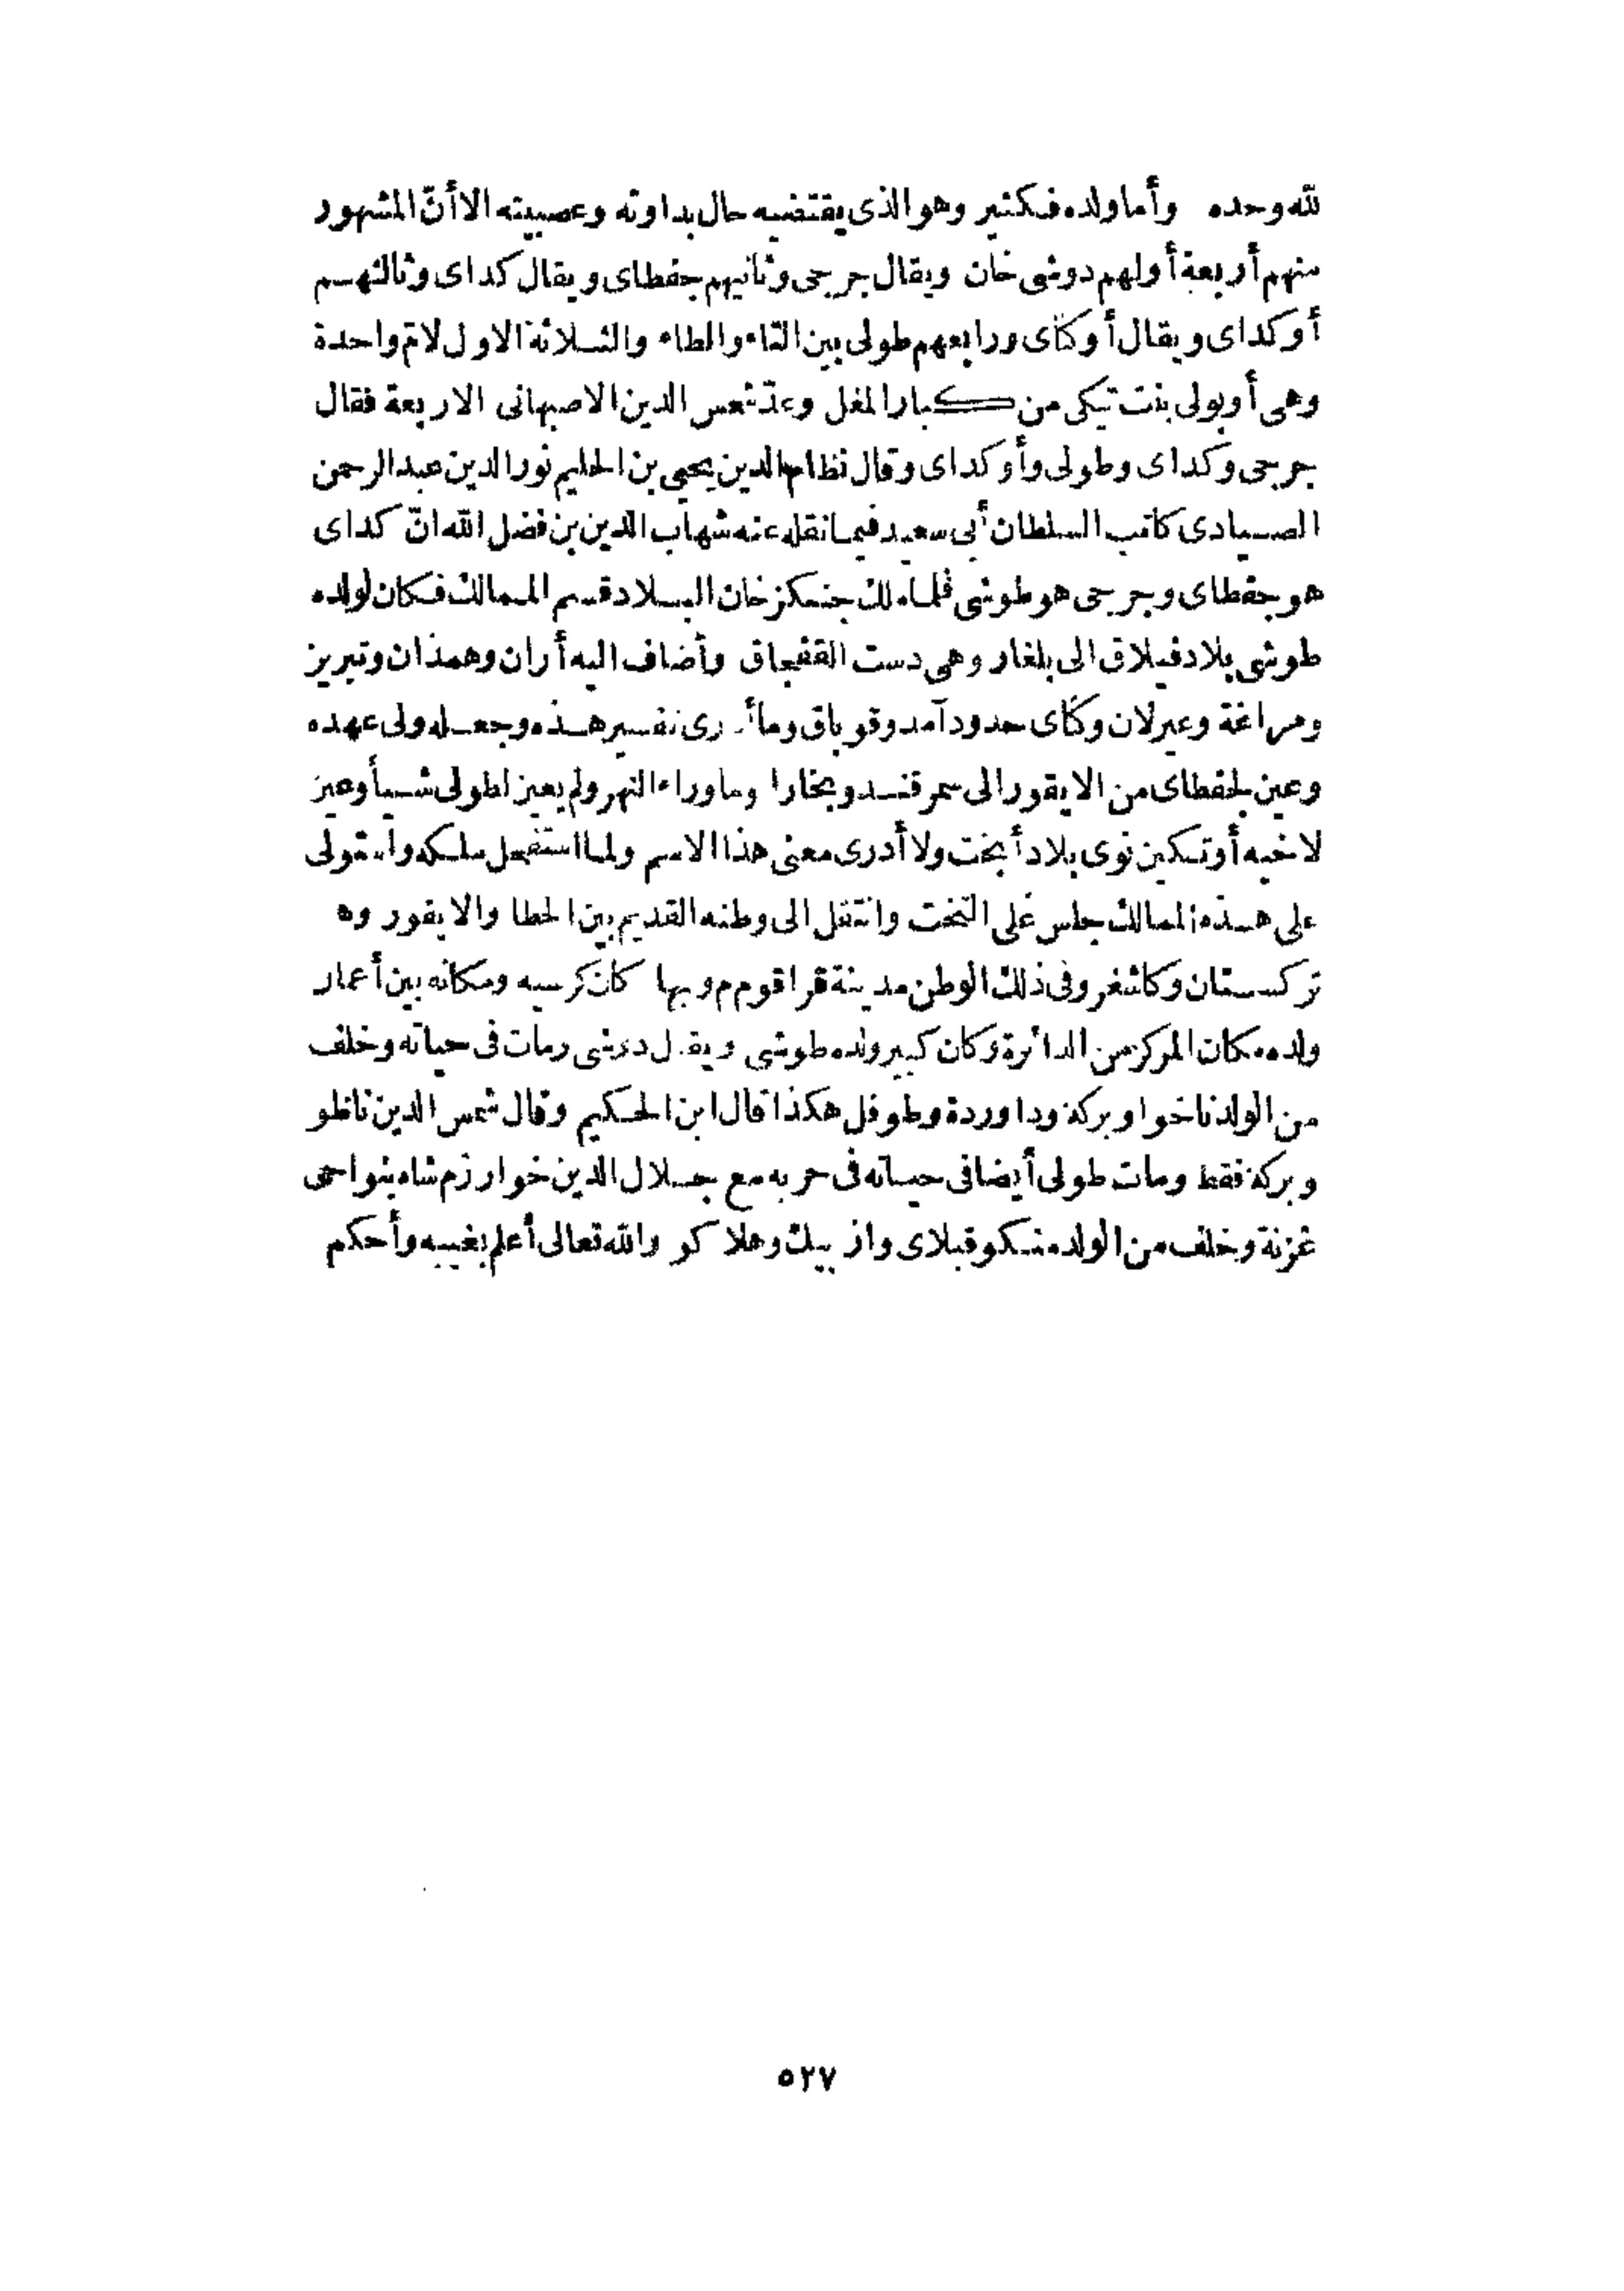 لله وحده وأما ولده فكثير وهو الذى يقتضيه حال بداوته وعصبيته الا أنّ المشهور
منهم أربعة أولهم دوشى خان ويقال جرجى وثانيهم جفطاى ويقال كداى وثالثهم
أوكداى ويقال أوكتاى ورابعهم طولى بين التاء والطاء والثلاثة الاول لامّ واحدة
وهى أوبولى بنت تيكى من كبار المغل وعدّ شمس الدين الاصبهانى الاربعة فقال
جرجى وكداى وطولى وأوكداى وقال نظام الدين يحيى بن الحليم نور الدين عبد الرحمن
الصيادى كاتب السلطان أبى سعيد فيما نقله عنه شهاب الدين بن فضل الله انّ كداى
هو جفطاى وجرجى هو طوشى فلما ملك جنكز خان البلاد قسم الممالك فكان لولده
طوشى بلاد فيلاق الى بلغار وهى دست القفجاق وأضاف اليه أران وهمذان وتبريز
ومراغة وعيرلان وكتاى حدود آمد وقوباق وما أدرى تفسير هذه وجعله ولى عهده
وعين لجقطاى من الايقور الى سمرقند وبخارا وما وراء النهر ولم يعين لطولى شيأ وعين
لاخيه أوتكين نوى بلاد أبخت ولا أدرى معنى هذا الاسم ولما استفحل ملكه واستولى
على هذه الممالك جلس على التخت وانتقل الى وطنه القديم بين الخطا والايقور وه
تركستان وكاشغر وفى ذلك الوطن مدينة قراقوم وبها كان كرسيه ومكانه بين أعمار
ولده مكان المركز من الدائرة وكان كبير ولده طوشى ويقال دوشى ومات فى حياته وخلف
من الولد ناخوا وبركة وداوردة وطوفل هكذا قال ابن الحكيم وقال شمس الدين ناظو
وبركة فقط ومات طولى أيضا فى حياته فى حربه مع جلال الدين خوارزم شاه بنواحى
غزنة وخلف من الولد منكو قبلاى وازبيك وهلاكو والله تعالى أعلم بغيبه وأحكم
٥٢٧